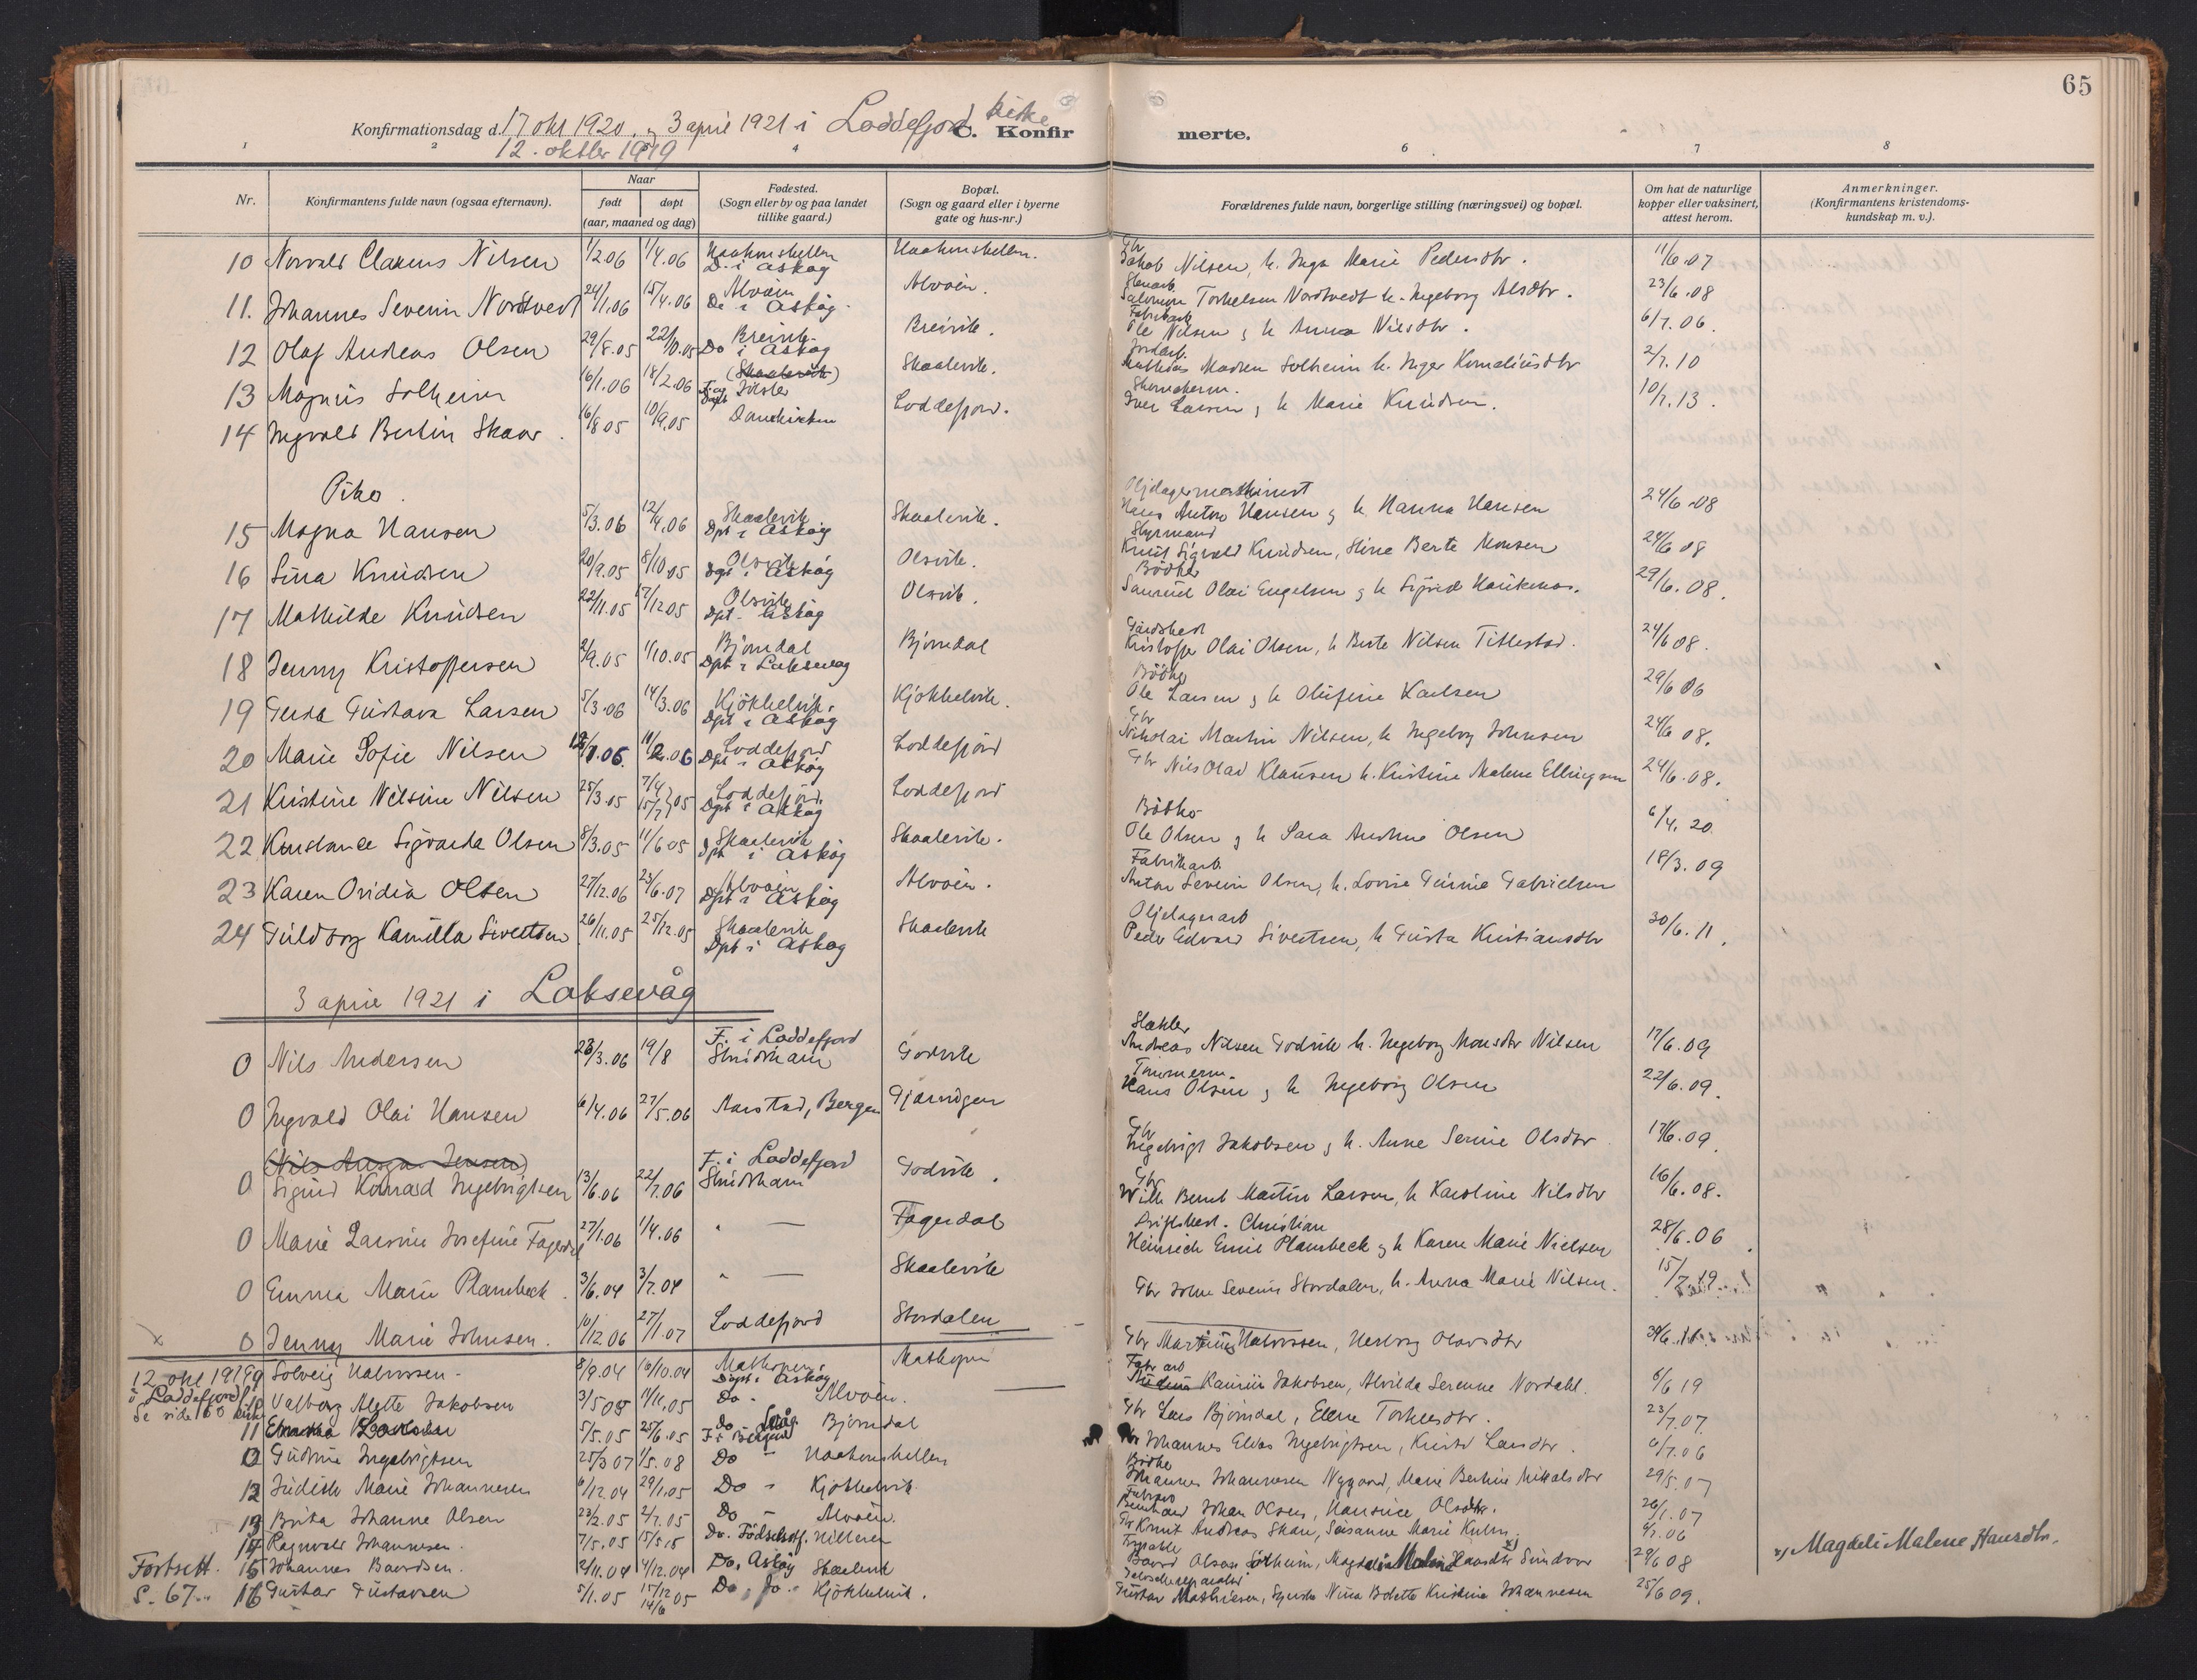 65
Konfirmationsdag d. 17 okt 1920. og 3 april 1921 i Loddefjord kirke
12. oktber 1919
C. Konfir merte.
1 2 4 6 7 8
Nr. Konfirmantens fulde navn (ogsaa efternavn). Naar født døpt (aar, maaned og dag) Fødested. (Sogn eller by og paa landet tillike gaard.) Bopæl. (Sogn og gaard eller i byerne gate og hus-nr.) Forældrenes fulde navn, borgerlige stilling (næringsvei) og bopæl. Om hat de naturlige kopper eller vaksinert, attest herom. Anmerkninger. (Konfirmantens kristendoms-kundskap m. v.).
10 Norvald Clarens Nilsen 1/2.06 1/4.06 Haakonshellen D. i Askøy Haakonshellen. Gbr Jakob Nilsen, h. Inga Marie Pedersdtr. 11/6.07
11. Johannes Severin Nordtvedt 24/1.06 15/4.06 Alvøen Do i Askøy Alvøen. Salomon Torkelsen Nordtvedt h. Ingeborg Alsdtr. 23/6.08
12 Olaf Andreas Olsen 29/8.05 22/10.05 Breivik Do i Askøy Breivik. Fabrikarb Ole Nilsen og h Anna Nilsdtr. 6/7.06.
13 Magnus Solheim 16/1.06 18/2.06 (Skaalevik) F. og døpt Jølster Skaalevik. Jordarb. Mathias Madsen Solheim h. Inger Korneliusdtr 2/7.10
14 Ingvald Bertin Skaar. 16/8.05 10/9.05 Domkirken Loddefjord. Skomakerm. Iver Larsen og h Marie Knudsen. 10/7.13.
Piker.
15 Magna Hansen 5/3.06 12/4.06 Skaalevik Dpt i Askøy Skaalevik. Oljelagermaskinist Hans Anton Hansen og h Hanna Hansen 24/6.08
16 Lina Knudsen 20/9.05 8/10.05 Olsvik Dpt i Askøy Olsvik. Styrmand Knut Sigvald Knudsen, Stine Berte Monsen 24/6 08
17 Mathilde Knudsen 22/11.05 17/12.05 Olsvik Dpt. Askøy Olsvik. Bødker Samuel Olai Engelsen og h Sigrid Haukenæs. 29/6.08.
18 Jenny Kristoffersen 2/9.05 1/10.05 Bjørndal Dpt i Laksevåg Bjørndal Gaardsbest Kristoffer Olai Olsen, h Berte Nilsen Titlestad. 24/6 08.
19 Gerda Gustava Larsen 5/3.06 14/3.06 Kjøkkelvik. Dpt i Askøy Kjøkkelvik. Bødker Ole Larsen og h Olufine Karlsen 29/6 06
20 Marie Sofie Nilsen 12/1.06. 11/2.06 Loddefjord Dpt i Askøy Loddefjord Gbr Nikolai Martin Nilsen, h Ingeborg Johnsen 24/6 08.
21 Kristine Nilsine Nilsen 25/3.05 7/4 15/7 05 Loddefjord. Dpt i Askøy Loddefjord Gbr Nils Olad Klausen h. Kristine Malene Ellingsen 24/6.08.
22 Konstance Sigvarda Olsen 8/3.05 11/6 05 Skaalevik Dpt i Askøy Skaalevik. Bødker Ole Olsen og h Sara Andrine Olsen 6/4.20.
23 Karen Ovidia Olsen 27/12.06 23/6.07 Alvøen Dpt i Askøy Alvøen. Fabrikarb. Anton Severin Olsen, h. Lovise Gurine Gabrielsen 18/3.09
24 Guldborg Kamilla Sivertsen 26/11.05 25/12.05 Skaalevik Dpt i Askøy Skaalevik Oljelagerarb Peder Edvard Sivertsen, h Gusta Kristiansdtr 30/6.11.
3 april 1921 i Laksevåg
0 Nils Andersen 28/3.06 19/8 F. i Loddefjord Strudsham Godvik Andreas Nilsen Godvik h. Ingeborg Monsdtr Nilsen 17/6.09
0 Ingvald Olai Hansen 6/4.06 27/5.06 Aarstad, Bergen Gjærvigen Tømmerm. Hans Olsen og h Ingeborg Olsen 22/6.09.
(Nils Ansgar Jensen)
0 Sigurd Konrad Ingebrigtsen 13/6.06 22/7.06 F. i Loddefjord Strudsham Godvik. Gbr Ingebrigt Jakobsen og h. Anne Serine Olsdtr. 17/6.09.
0 Marie Larsine Josefine Fagerdal 27/1.06 1/4.06 " — Fagerdal Gbr Will Bernt Martin Larsen, h Karoline Nilsdtr 16/6.08.
0 Emma Marie Plambeck. 3/6.04 3/7.04 " — Skaalevik Driftsbest. Christian Heinrich Emil Plambeck og h Karen Marie Nielsen 28/6.06.
x 0 Jenny Marie Johnsen. 10/12.06 27/1.07 Loddefjord Stordalen Gbr John Severin Stordalen, h. Anna Marie Nilsen. 15/7.19
12 okt 1919 i Loddefjord kirke Se side 60
9 Solveig Halvorsen. 8/9.04 16/10.04 Mathopen. Døpt i Askøy Mathopen Gbr Martinus Halvorsen, Herborg Olavsdtr
10 Valborg Alette Jakobsen 3/5 05 11/11.05 Do - Alvøen. Fabr arb Kaurin Jakobsen, Alvilda Serenne Nordahl. 6/6 19
11 5/5.05 25/6.05 Do F i Bergen Bjørndal Gbr Lars Bjørndal, Elene Torkelsdtr. 23/7.07.
12 Gudrun Ingebrigtsen 25/3 07 1/5.08 Do - Haakonshellen Gbr Johannes Elias Ingebrigtsen, Kristi Larsdtr. 6/7.06
13 Judith Marie Johannesen 6/12.04 29/1.05 Do - Kjøkkelvik. Bødker Johannes Johannesen Nygaard, Marie Bertine Mikalsdtr 29/5.07
13 Brita Johanne Olsen 23/2.05 2/7.05 Do - Alvøen. Fabrarb Bernhard Johan Olsen, Hansine Olsdtr. 26/1.07
14 Ragnvald Johannesen. 7/5.05 15/5 15 Do. Fødselsatt. Hilleren Gbr Knut Andreas Skau, Susanne Marie Kulm 4/7.06
Fortsett. S. 67..
15 Johannes Baardsen. 2/11.04 4/12.04 Do, Askøy Skaalevik Baard Olson Solheim, Magdeli Malene Hansdtr Sundvor x) 29/6 08 x) Magdeli Malene Hansdtr.
16 Gustav Gustavsen 5/1.05 15/12 14/6 05 Do, Do. Kjøkkelvik. Gustav Mathiesen, Nina Bolette Kristine Johannesen 25/6 09.